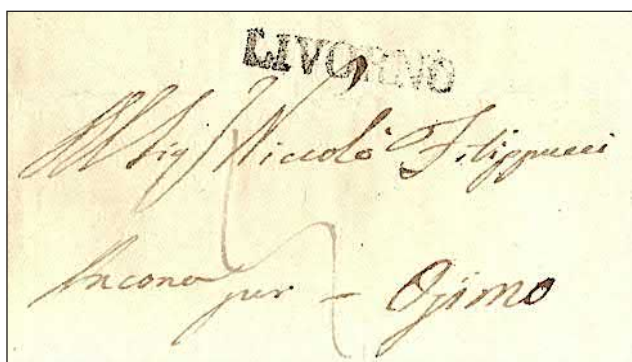 LIVORNO
Al Sig Niccolò Filippucci
Ancona per - Osimo